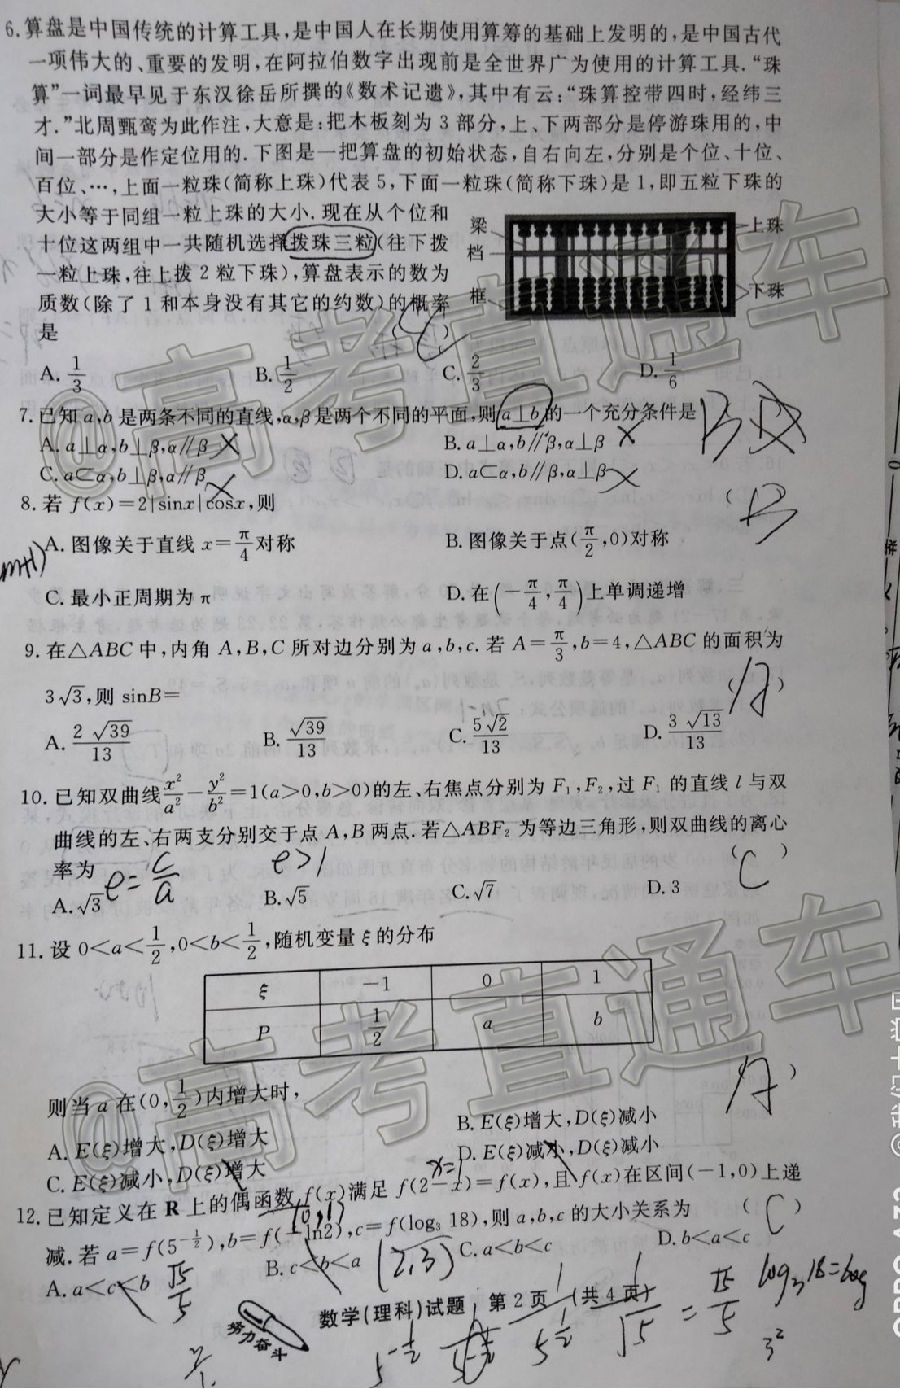 6.算盘是中国传统的计算工具,是中国人在长期使用算筹的基础上发明的,是中国古代
一项伟大的、重要的发明,在阿拉伯数字出现前是全世界广为使用的计算工具.“珠
算”一词最早见于东汉徐岳所撰的《数术记遗》,其中有云:“珠算控带四时,经纬三
才.”北周甄鸾为此作注,大意是:把木板刻为3部分,上、下两部分是停游珠用的,中
间一部分是作定位用的.下图是一把算盘的初始状态,自右向左,分别是个位、十位、
百位、…,上面一粒珠(简称上珠)代表5,下面一粒珠(简称下珠)是1,即五粒下珠的
大小等于同组一粒上珠的大小.现在从个位和
十位这两组中一共随机选择拨珠三粒(往下拨
一粒上珠,往上拨2粒下珠),算盘表示的数为
质数(除了1和本身没有其它的约数)的概率
是 ( )
梁
档
框
上珠
下珠
A. 1/3 B. 1/2 C. 2/3 D. 1/6
7.已知a,b是两条不同的直线,α,β是两个不同的平面,则a⊥b的一个充分条件是
A. a⊥α,b⊥β,α∥β B. a⊥α,b∥β,α⊥β
C. a⊂α,b⊥β,α∥β D. a⊂α,b∥β,α⊥β
B
8.若 f(x)=2|sinx|cosx,则
(B
A.图像关于直线 x=π/4对称 B.图像关于点(π/2,0)对称
m+1)
C.最小正周期为π D.在(-π/4,π/4)上单调递增
9.在△ABC中,内角A,B,C所对边分别为a,b,c.若A=π/3,b=4,△ABC的面积为
3√3,则 sinB= (A)
A. 2√39/13 B. √39/13 C. 5√2/13 D. 3√13/13
10.已知双曲线x²/a²-y²/b²=1(a>0,b>0)的左、右焦点分别为F₁,F₂,过F₁的直线l与双
曲线的左、右两支分别交于点A,B两点.若△ABF₂为等边三角形,则双曲线的离心
率为 (C)
e=c/a e>1
A.√3 B.√5 C.√7 D.3
11.设0<a<1/2,0<b<1/2,随机变量ξ的分布
ξ -1 0 1
P 1/2 a b
则当a在(0,1/2)内增大时, (A)
A. E(ξ)增大,D(ξ)增大 B. E(ξ)增大,D(ξ)减小
C. E(ξ)减小,D(ξ)增大 D. E(ξ)减小,D(ξ)减小
x=1
12.已知定义在R上的偶函数f(x)满足f(2-x)=f(x),且f(x)在区间(-1,0)上递
减.若a=f(5^(-1/2)),b=f(-ln2),c=f(log₃18),则a,b,c的大小关系为 (C)
A. a<c<b B. c<b<a C. a<b<c D. b<a<c
√5/5 (2,3)
数学(理科)试题 第2页 (共4页)
努力奋斗
5^(-1/2) 1/5^(1/2) 1/√5=√5/5 log₃18=log
3²
@高考直通车
@高考直通车